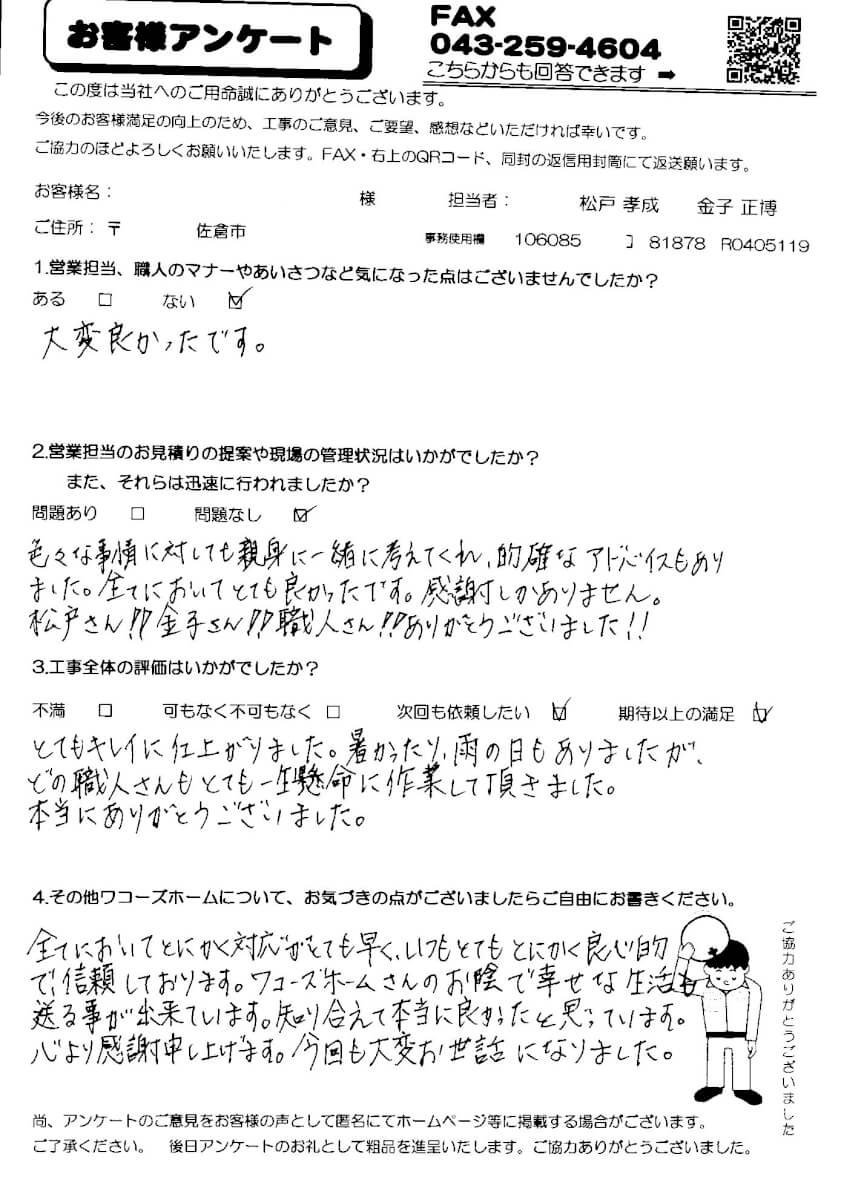 お客様アンケート
FAX
043-259-4604
こちらからも回答できます ➡
この度は当社へのご用命誠にありがとうございます。
今後のお客様満足の向上のため、工事のご意見、ご要望、感想などいただければ幸いです。
ご協力のほどよろしくお願いいたします。FAX・右上のQRコード、同封の返信用封筒にて返送願います。
お客様名： 様 担当者： 松戸 孝成 金子 正博
ご住所：〒 佐倉市 事務使用欄 106085 81878 R0405119
1.営業担当、職人のマナーやあいさつなど気になった点はございませんでしたか？
ある □ ない ☑
大変良かったです。
2.営業担当のお見積りの提案や現場の管理状況はいかがでしたか？
また、それらは迅速に行われましたか？
問題あり □ 問題なし ☑
色々な事情に対しても親身に一緒に考えてくれ、的確なアドバイスもあり
ました。全てにおいてとても良かったです。感謝しかありません。
松戸さん!!金子さん!!職人さん!!ありがとうございました!!
3.工事全体の評価はいかがでしたか？
不満 □ 可もなく不可もなく □ 次回も依頼したい ☑ 期待以上の満足 ☑
とてもキレイに仕上がりました。暑かったり、雨の日もありましたが、
どの職人さんもとても一生懸命に作業して頂きました。
本当にありがとうございました。
4.その他ワコーズホームについて、お気づきの点がございましたらご自由にお書きください。
全てにおいてとにかく対応がとても早く、いつもとてもとにかく良心的
で信頼しております。ワコーズホームさんのお陰で幸せな生活も
送る事が出来ています。知り合えて本当に良かったと思っています。
心より感謝申し上げます。今回も大変お世話になりました。
ご協力ありがとうございました
尚、アンケートのご意見をお客様の声として匿名にてホームページ等に掲載する場合がございます。
ご了承ください。 後日アンケートのお礼として粗品を進呈いたします。ご協力ありがとうございました。